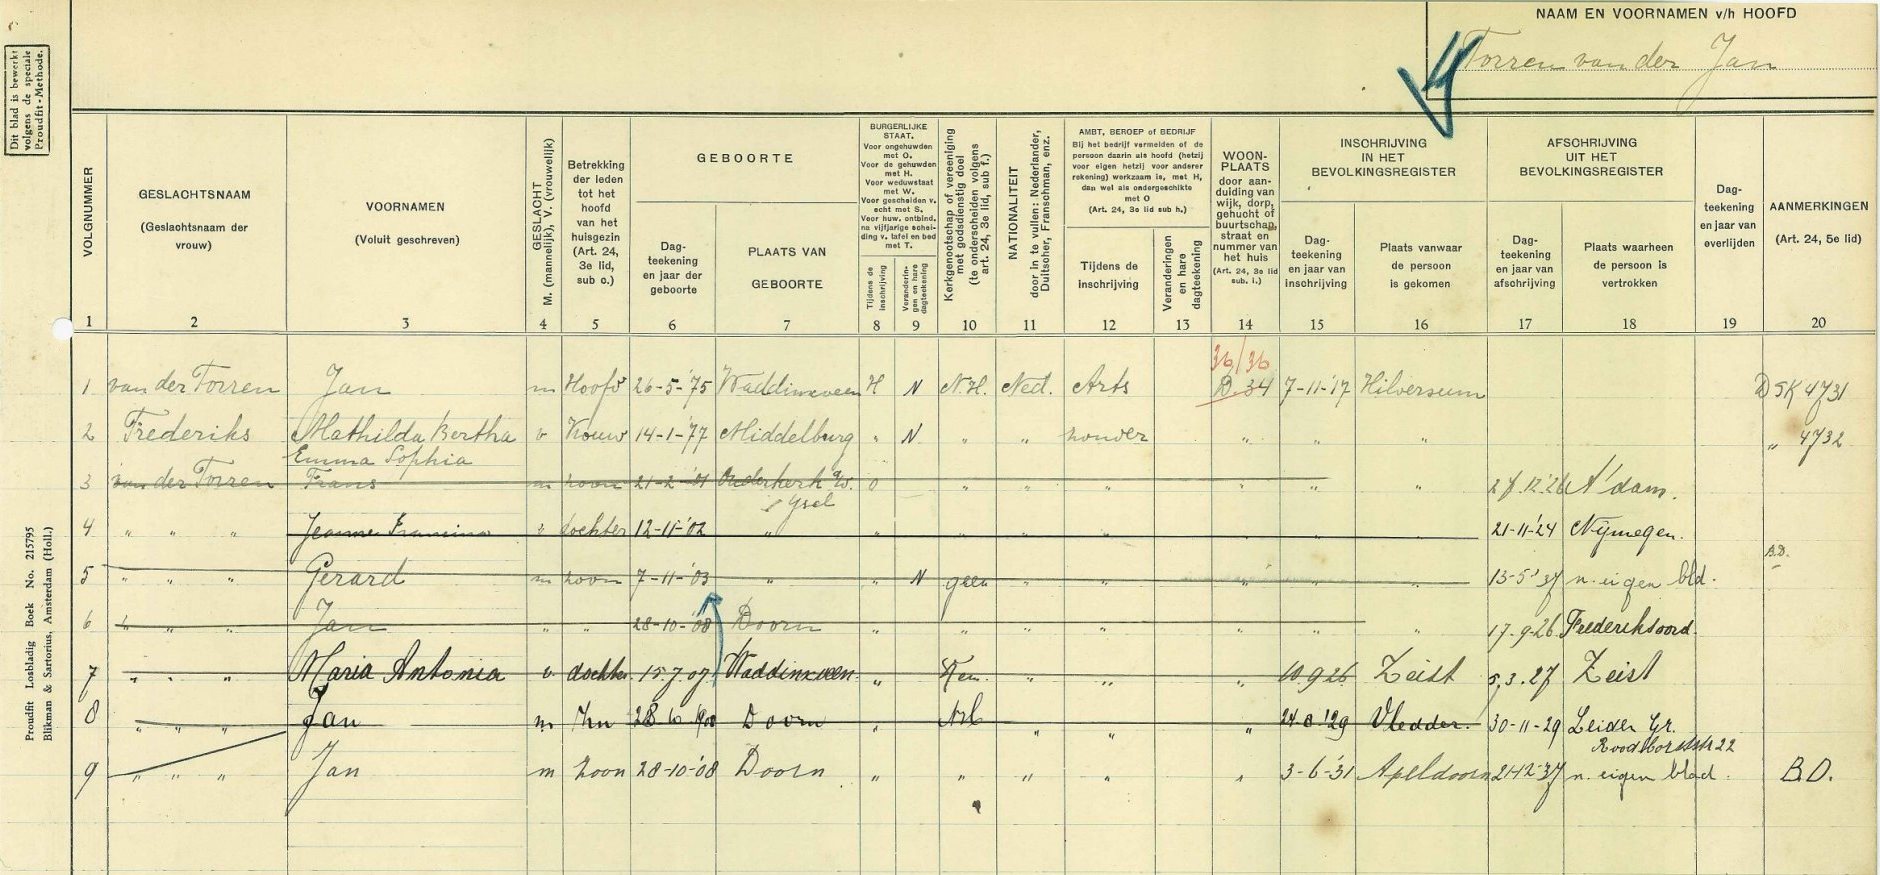 NAAM EN VOORNAMEN v/h HOOFD
Torren van der Jan
Dit blad is bewerkt
volgens de speciale
Proudfit-Methode.
Proudfit Losbladig Boek No. 215795
Blikman & Sartorius, Amsterdam (Holl.)
VOLGNUMMER
GESLACHTSNAAM
(Geslachtsnaam der
vrouw)
VOORNAMEN
(Voluit geschreven)
GESLACHT
M. (mannelijk), V. (vrouwelijk)
Betrekking
der leden
tot het
hoofd
van het
huisgezin
(Art. 24,
3e lid,
sub c.)
GEBOORTE
Dag-
teekening
en jaar der
geboorte
PLAATS VAN
GEBOORTE
BURGERLIJKE
STAAT.
Voor ongehuwden
met O.
Voor de gehuwden
met H.
Voor weduwstaat
met W.
Voor gescheiden v.
echt met S.
Voor huw. ontbind.
na vijfjarige schei-
ding v. tafel en bed
met T.
Tijdens de
inschrijving
Veranderin-
gen en hare
dagteekening
Kerkgenootschap of vereeniging
met godsdienstig doel
(te onderscheiden volgens
art. 24, 3e lid, sub f.)
NATIONALITEIT
door in te vullen: Nederlander,
Duitscher, Franschman, enz.
AMBT, BEROEP of BEDRIJF
Bij het bedrijf vermelden of de
persoon daarin als hoofd (hetzij
voor eigen hetzij voor anderer
rekening) werkzaam is, met H,
dan wel als ondergeschikte
met O
(Art. 24, 3e lid sub h.)
Tijdens de
inschrijving
Veranderingen
en hare
dagteekening
WOON-
PLAATS
door aan-
duiding van
wijk, dorp,
gehucht of
buurtschap,
straat en
nummer van
het huis
(Art. 24, 3e lid
sub. i.)
INSCHRIJVING
IN HET
BEVOLKINGSREGISTER
Dag-
teekening
en jaar van
inschrijving
Plaats vanwaar
de persoon
is gekomen
AFSCHRIJVING
UIT HET
BEVOLKINGSREGISTER
Dag-
teekening
en jaar van
afschrijving
Plaats waarheen
de persoon is
vertrokken
Dag-
teekening
en jaar van
overlijden
AANMERKINGEN
(Art. 24, 5e lid)
1 2 3 4 5 6 7 8 9 10 11 12 13 14 15 16 17 18 19 20
36/36
1 van der Torren Jan m Hoofd 26-5-'75 Waddinxveen H N N.H. Ned. Arts D. 34 7-11-'17 Hilversum DSK 4731
2 Frederiks Mathilda Bertha v Vrouw 14-1-'77 Middelburg " N " " zonder " " " " 4732
Emma Sophia
3 van der Torren Frans m zoon 21-2-'01 Ouderkerk a/d. O " " " " " " A'dam.
Ysel
4 " " " Jeanne Francina v dochter 12-11-'02 " " " " " " " " 21-11-'24 Nijmegen.
B.D.
5 " " " Gerard m zoon 7-11-'03 " " N geen " " " " " 13-5-'37 n. eigen bld.
6 " " " Jan " " 28-10-'08 Doorn " " " " " " " 17-9-26 Frederiksoord
7 " " " Maria Antonia v. dochter 15.7.07 Waddinxveen " Rem. " " " 10.9.26 Zeist 5.3.27 Zeist
8 " " " Jan m Zn 28 10 1908 Doorn " NH " " " 24-8-'29 Vledder. 30-11-29 Leiden Gr.
Roodborststr 22
9 " " " Jan m zoon 28-10-'08 Doorn " " " " " 3-6-'31 Apeldoorn 21-12-37 n. eigen blad. B.D.